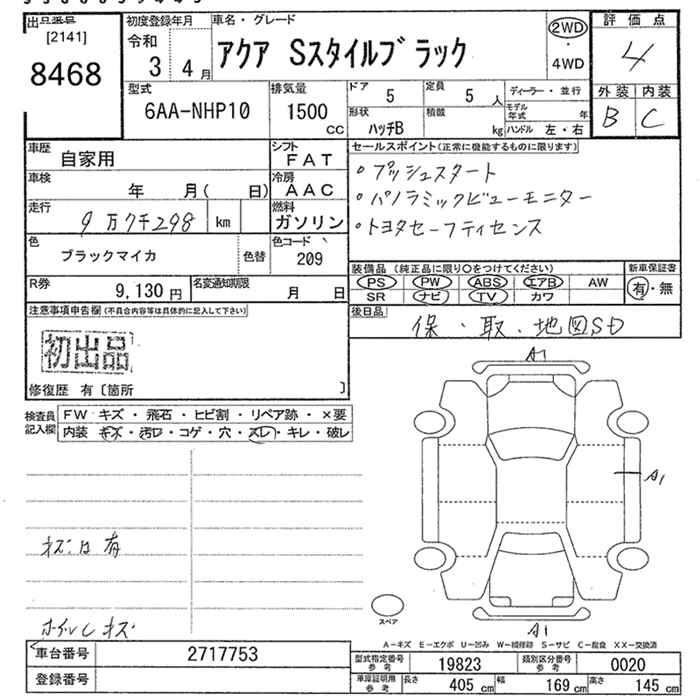 出品番号
[2141]
8468
初度登録年月
令和
3 4 月
車名・グレード
アクア Sスタイルブラック
2WD
・
4WD
評価点
4
外装 内装
B C
型式
6AA-NHP10
排気量
1500
CC
ドア
5
定員
5 人
形状
ハッチB
積載
kg
ディーラー・並行
モデル
年式 年
ハンドル 左・右
車歴
自家用
シフト
FAT
車検
年 月( 日)
冷房
AAC
走行
9万7千298 km
燃料
ガソリン
色
ブラックマイカ
色替
色コード
209
R券
9,130 円
名変通知期限
月 日
セールスポイント(正常に機能するものに限ります)
・プッシュスタート
・パノラミックビューモニター
・トヨタセーフティセンス
装備品(純正品に限り○をつけてください)
PS PW ABS エアB AW
SR ナビ TV カワ
新車保証書
有・無
後日品
保・取・地図SD
注意事項申告欄(不具合内容等は具体的に記入して下さい)
初出品
修復歴 有〔箇所 〕
検査員
記入欄
FW キズ・飛石・ヒビ割・リペア跡・×要
内装 キズ・汚ロ・コゲ・穴・スレ・キレ・破レ
A1
A1
キズ・凹有
ホイルキズ
スペア
A1
A-キズ E-エクボ U-凹み W-補修跡 S-サビ C-腐食 XX-交換済
車台番号
2717753
登録番号
型式指定番号
参考
19823
類別区分番号
参考
0020
車庫証明用
参考
長さ
405 cm
幅
169 cm
高さ
145 cm